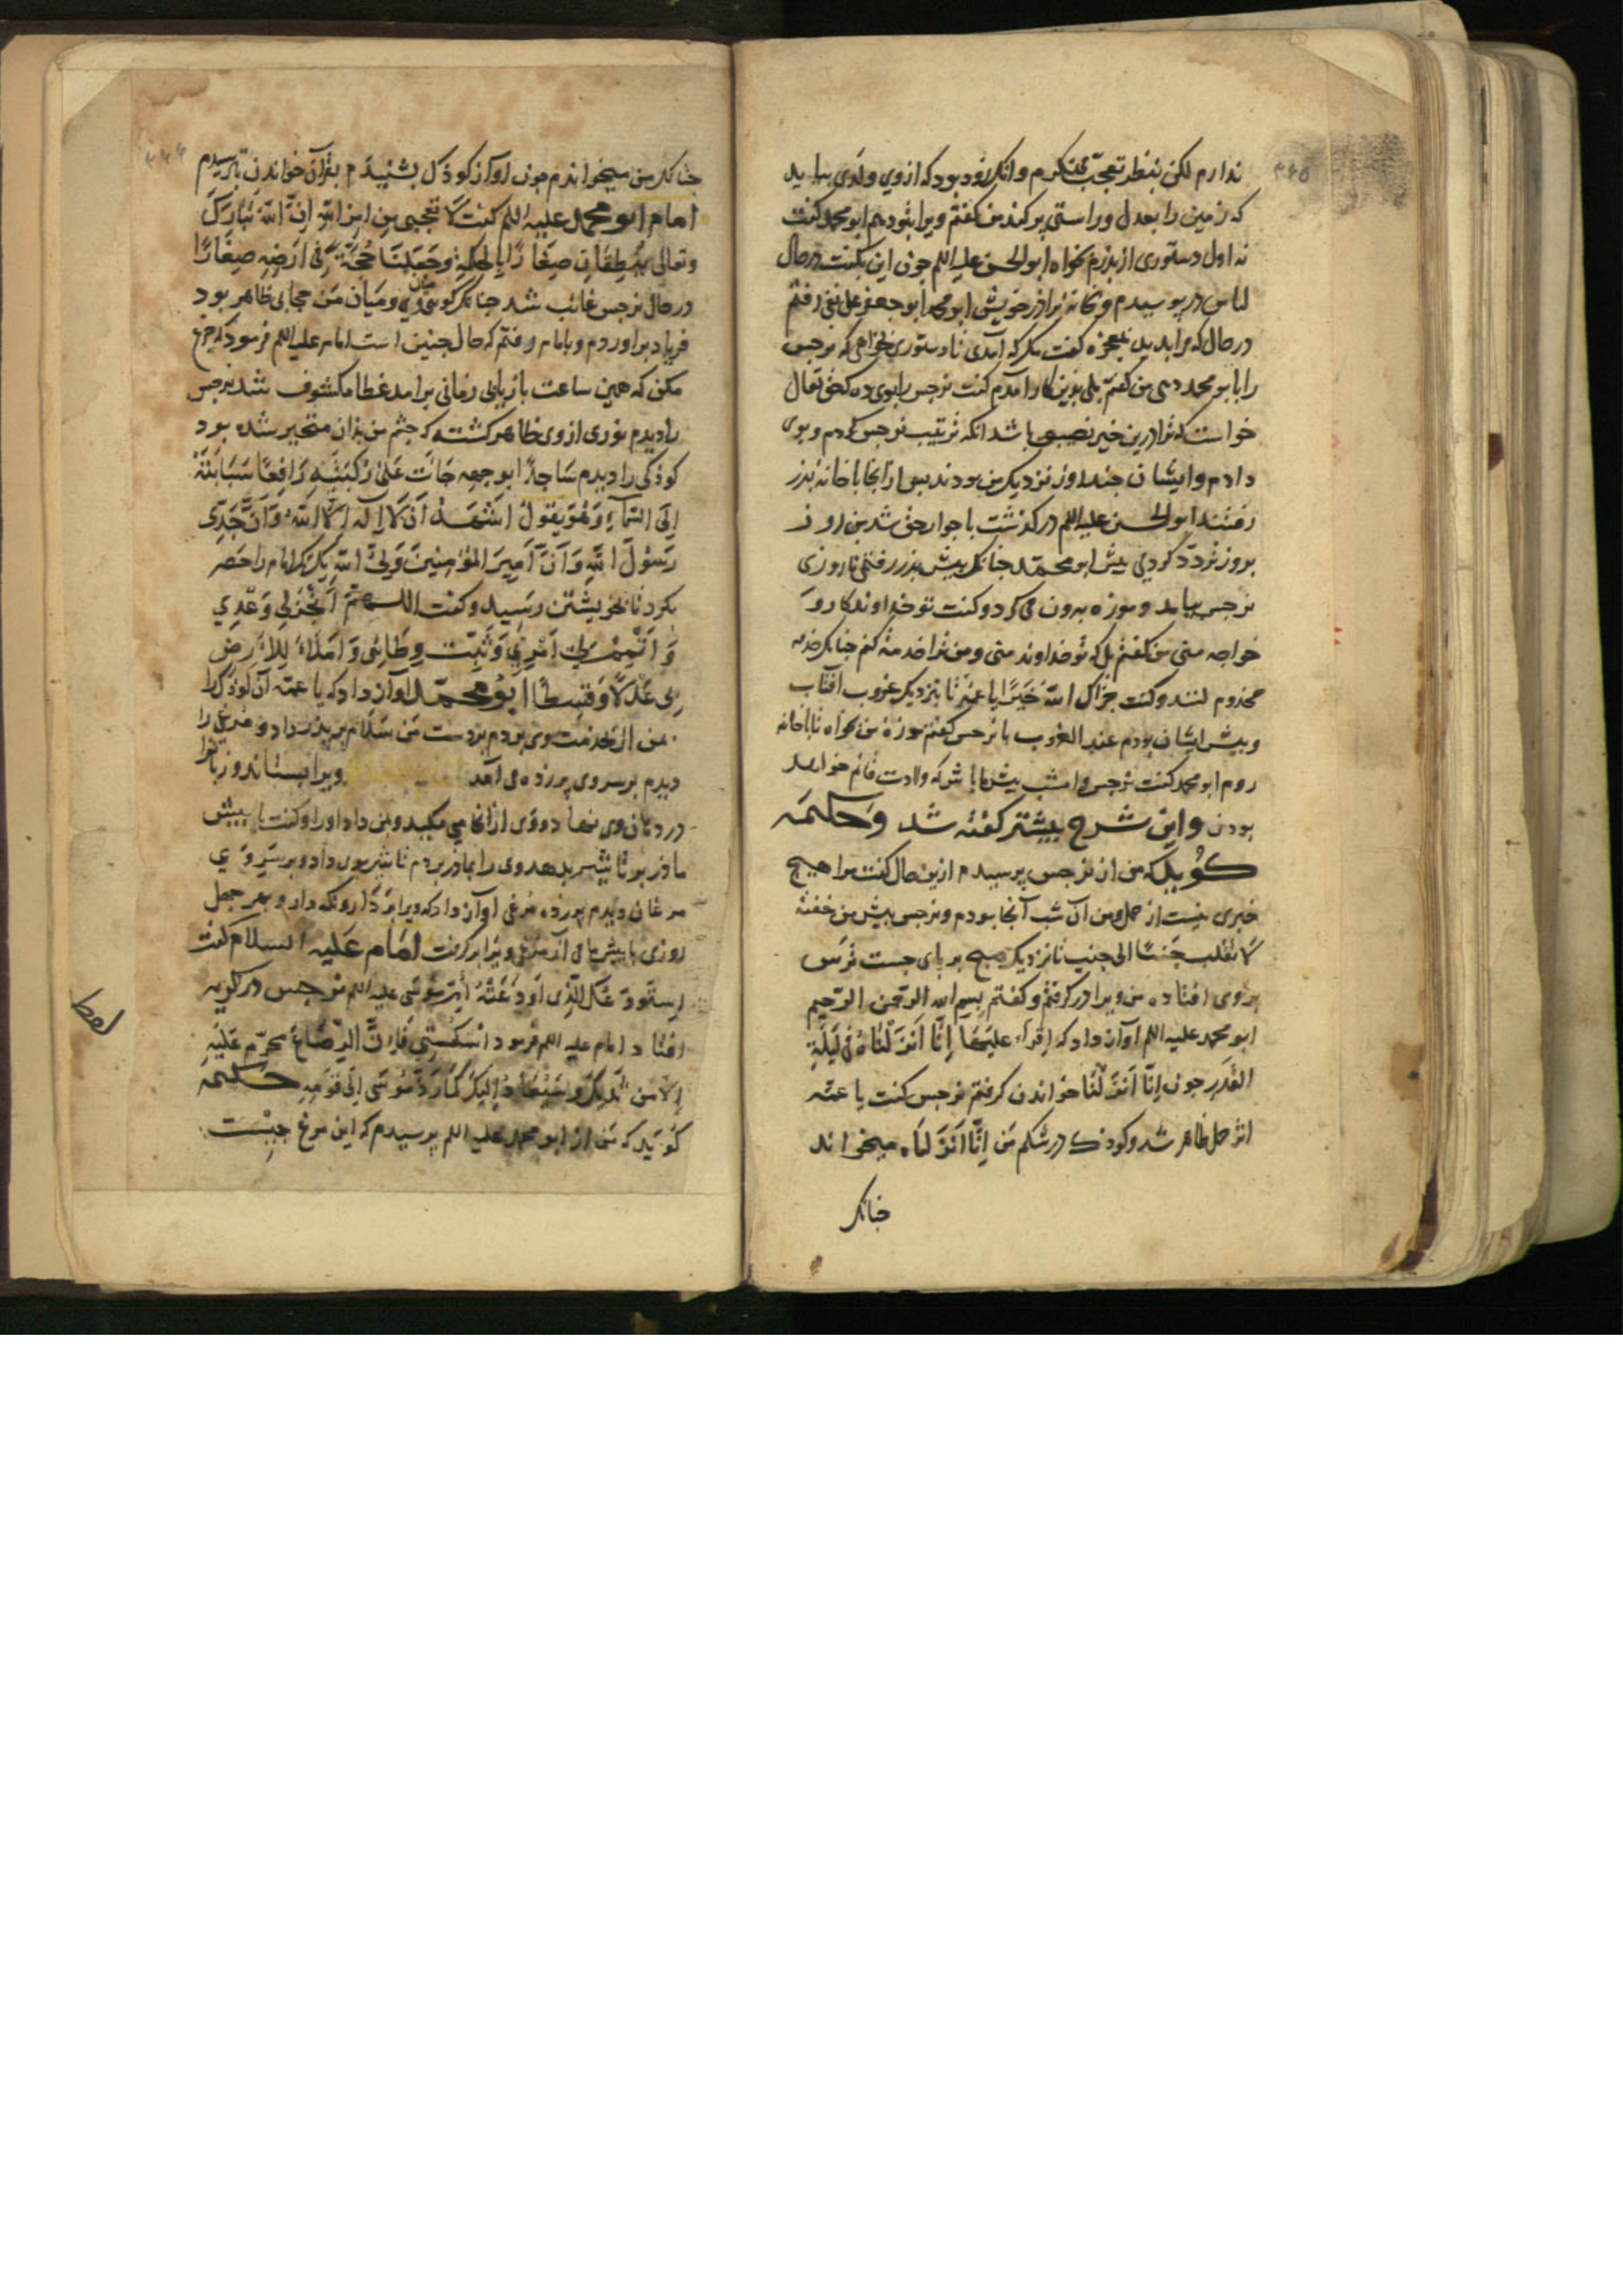 ندارم لکن بنظر تعجب می نکرم وانک زود بود که ازوی ولدی بیاید
که زمین را بعدل وراستی پر کند من کفتم ویرا بتو دهم ابو محمد کفت
نه اول دستوری از پدرم بخواه ابو الحسن علیه اللم چون این بکفت درحال
لباس در پوسیدم و بخانه برادر خویش ابو محمد ابو جعفر علی نقی رفتم
درحال که مرا بدید بمعجزه کفت مکر که آمدی تا دستوری خواهی که نرجس
را بابو محمد دهی من کفتم بلی بدین کار آمدم کفت نرجس را بوی ده که حق تعالی
خواست که ترا درین خیر نصیبی باشد انکه ترتیب نرجس کردم و بوی
دادم وایشان چند روز نزدیک من بودند پس ازانجا با خانه پدر
رفتند ابو الحسن علیه اللم درکذشت با جوار حق شد من روز
بروز تردد کردمی پیش ابو محمد چنانک پیش پدر رفتمی تا روزی
نرجس بیامد و موزه بیرون می کرد و کفت تو خداوندکار و
خواجه منی من کفتم بل که تو خداوند منی ومن ترا خدمت کنم چنانک خدمه
مخدوم کنند و کفت جزاک الله خیرا یا عمه تا نزدیک غروب افتاب
وپیش ایشان بودم عند الغروب با نرجس کفتم موزه من بخواه تا باخانه
روم ابو محمد کفت نرجس را امشب پیش ما باش که ولادت قائم خواهد
بودن واین شرح پیشتر کفته شد وحکیمه
کوید که من از نرجس پرسیدم ازین حال کفت مرا هیچ
خبری نیست از حمل ومن آن شب آنجا بودم ونرجس پیش من خفته
لا تقلب جنبا الی جنب تا نزدیک صبح بر پای جست ترس
بروی افتاده من ویرا در کرفتم و کفتم بسم الله الرحمن الرحیم
ابو محمد علیه اللم آواز داد که اقرا علیها انا انزلناه فی لیلة
القدر چون انا انزلنا خواندن کرفتم نرجس کفت یا عمه
اثر حمل ظاهر شد وکودک در شکم من انا انزلناه میخواند
چنانک
چنانک من میخواندم چون آواز کودک بشنیدم بقرآن خواندن بترسیدم
امام ابو محمد علیه اللم کفت لا تعجبی من امر الله ان الله تبارک
وتعالی ینطقنا صغارا بالحکمة وجعلنا حجة فی ارضه صغارا
درحال نرجس غائب شد چنانک کوئی میان وی ومیان من حجابی ظاهر بود
فریاد براوردم وبامام رفتم که حال چنین است امام علیه اللم فرمود که جزع
مکن که همین ساعت بازیابی زمانی برامد غطا مکشوف شد نرجس
را دیدم نوری ازوی ظاهر کشته که چشم من بدان متحیر شده بود
کودکی را دیدم ساجدا بوجهه جاث علی رکبتیه رافعا سبابته
الی السماء وهو یقول اشهد ان لا اله الا الله وان جدی
رسول الله وان امیر المؤمنین ولی الله یک یک امام را حصر
بکرد تا بخویشتن رسید وکفت اللهم انجز لی وعدی
واتمم لی امری وثبت وطاتی واملاء للارض
بی عدلا وقسطا ابو محمد آواز داد که یا عمه آن کودک را
بمن آر بخدمت وی بردم بر دست من سلام بر پدر داد و مرغی را
دیدم بر سر وی پر زده می آمد ویرا بستاند و زبانرا
در دهان وی نهاد و وی ازانجا می مکید و بمن داد او را و کفت با پیش
مادر بر تا شیر بدهد وی را بمادر بردم تا شیر بوی داد و بر سر وی
مرغان دیدم پر زده مرغی آواز داد که ویرا بردار و نکه دار و بعد چهل
روزی با پیش ما می آر مرغ ویرا برکرفت امام علیه السلام کفت
استودعتک الذی اودعته ام موسی علیه اللم نرجس در کریه
افتاد امام علیه اللم فرمود اسکتی فان الرضاع محرم علیه
الا من ثدیک وسیعاد الیک کما رد موسی الی امه حکیمه
کوید که من از ابو محمد علیه اللم پرسیدم که این مرغ چیست